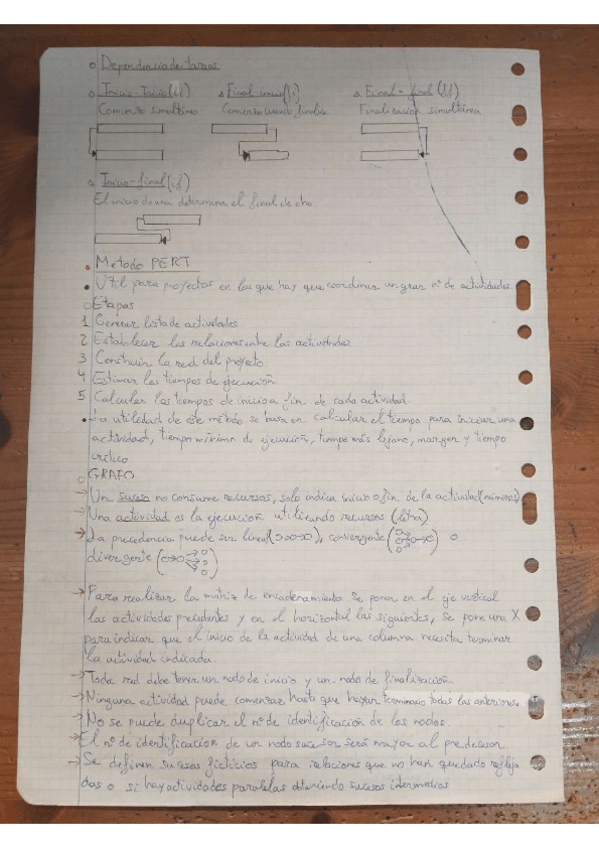 Dependencia de tareas
Inicio-Inicio (ii) Final-inicio (fi) Final-final (ff)
Comienzo simultáneo Comienzo cuando finalice Finalización simultánea
Inicio-final (if)
El inicio de una determina el final de otra.
Metodo PERT
Útil para proyectos en los que hay que coordinar un gran nº de actividades.
Etapas
1 Generar lista de actividades
2 Establecer las relaciones entre las actividades
3 Construir la red del proyecto
4 Estimar los tiempos de ejecución
5 Calcular los tiempos de inicio a fin de cada actividad
La utilidad de este método se basa en calcular el tiempo para iniciar una
actividad, tiempo mínimo de ejecución, tiempo más lejano, margen y tiempo
crítico
GRAFO
Un suceso no consume recursos, solo indica inicio o fin de la actividad (números)
Una actividad es la ejecución utilizando recursos (letra)
La precedencia puede ser lineal, convergente o
divergente
Para realizar la matriz de encadenamiento se ponen en el eje vertical
las actividades precedentes y en el horizontal las siguientes, se pone una X
para indicar que el inicio de la actividad de una columna necesita terminar
la actividad indicada.
Toda red debe tener un nodo de inicio y un nodo de finalización.
Ninguna actividad puede comenzar hasta que hayan terminado todas las anteriores.
No se puede duplicar el nº de identificación de los nodos.
El nº de identificación de un nodo sucesor será mayor al predecesor
Se definen sucesos ficticios para relaciones que no han quedado refleja
das o si hay actividades paralelas obteniendo sucesos intermedios